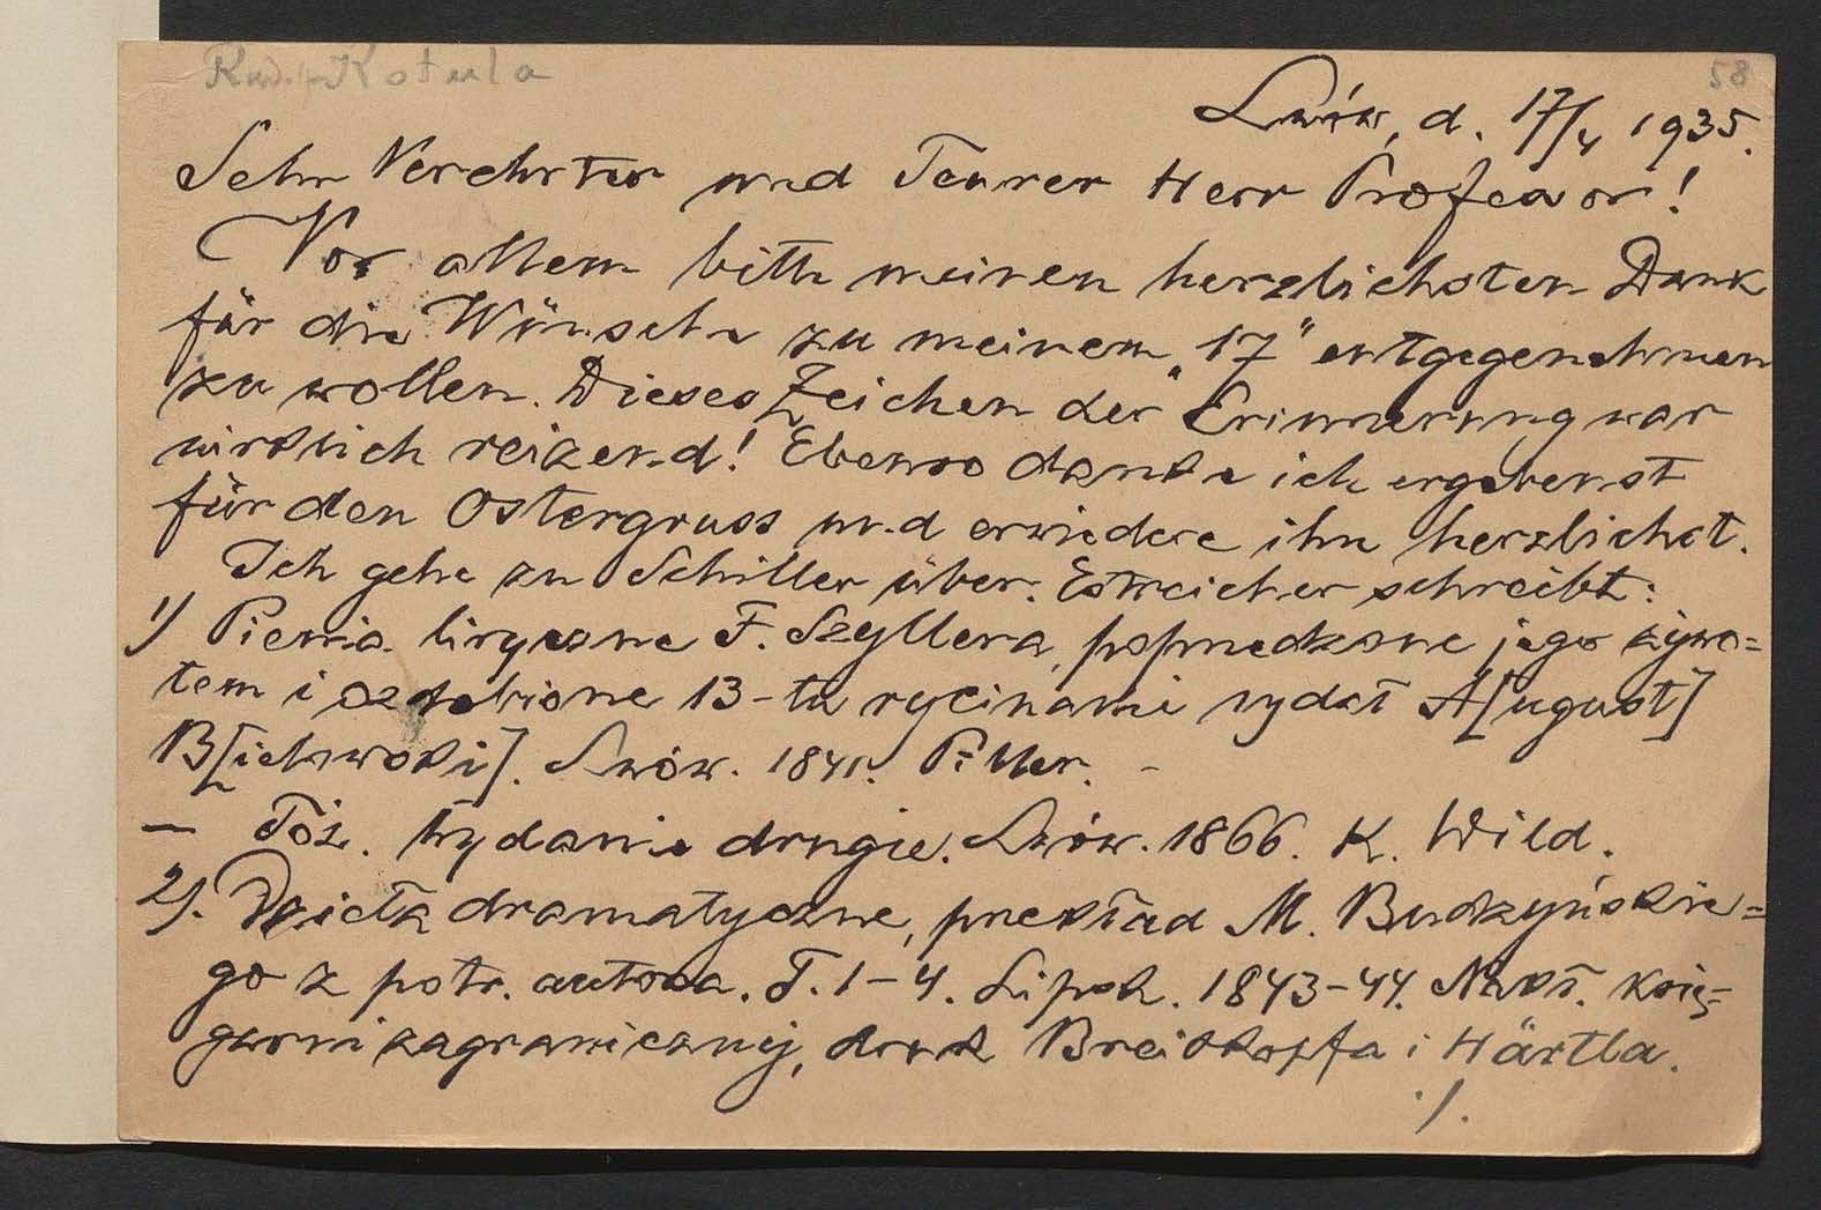 Kotula
58
Lwów, d. 17/4 1935.
Sehr Verehrter und Teurer Herr Professor!
Vor allem bitte meinen herzlichsten Dank
für die Wünsche zu meinem „17" entgegennehmen
zu wollen. Dieses Zeichen der Erinnerung war
wirklich reizend! Ebenso danke ich ergebenst
für den Ostergruss und erwiedere ihn herzlichst.
Ich gehe zu Schiller über. Estreicher schreibt:
1) Pienia liryczne F. Szyllera, poprzedzone jego żywo=
tem i ozdobione 13-tu rycinami wydał A[ugust]
B[ielowski]. Lwów. 1841. Piller. –
– Toż. Wydanie drugie. Lwów. 1866. K. Wild.
2). Dzieła dramatyczne, przekład M. Budzyńskie=
go z potr. autora. T. 1–4. Lipsk. 1843–44. Nakł. księ=
garni zagranicznej, druk Breitkopfa i Härtla.
./.